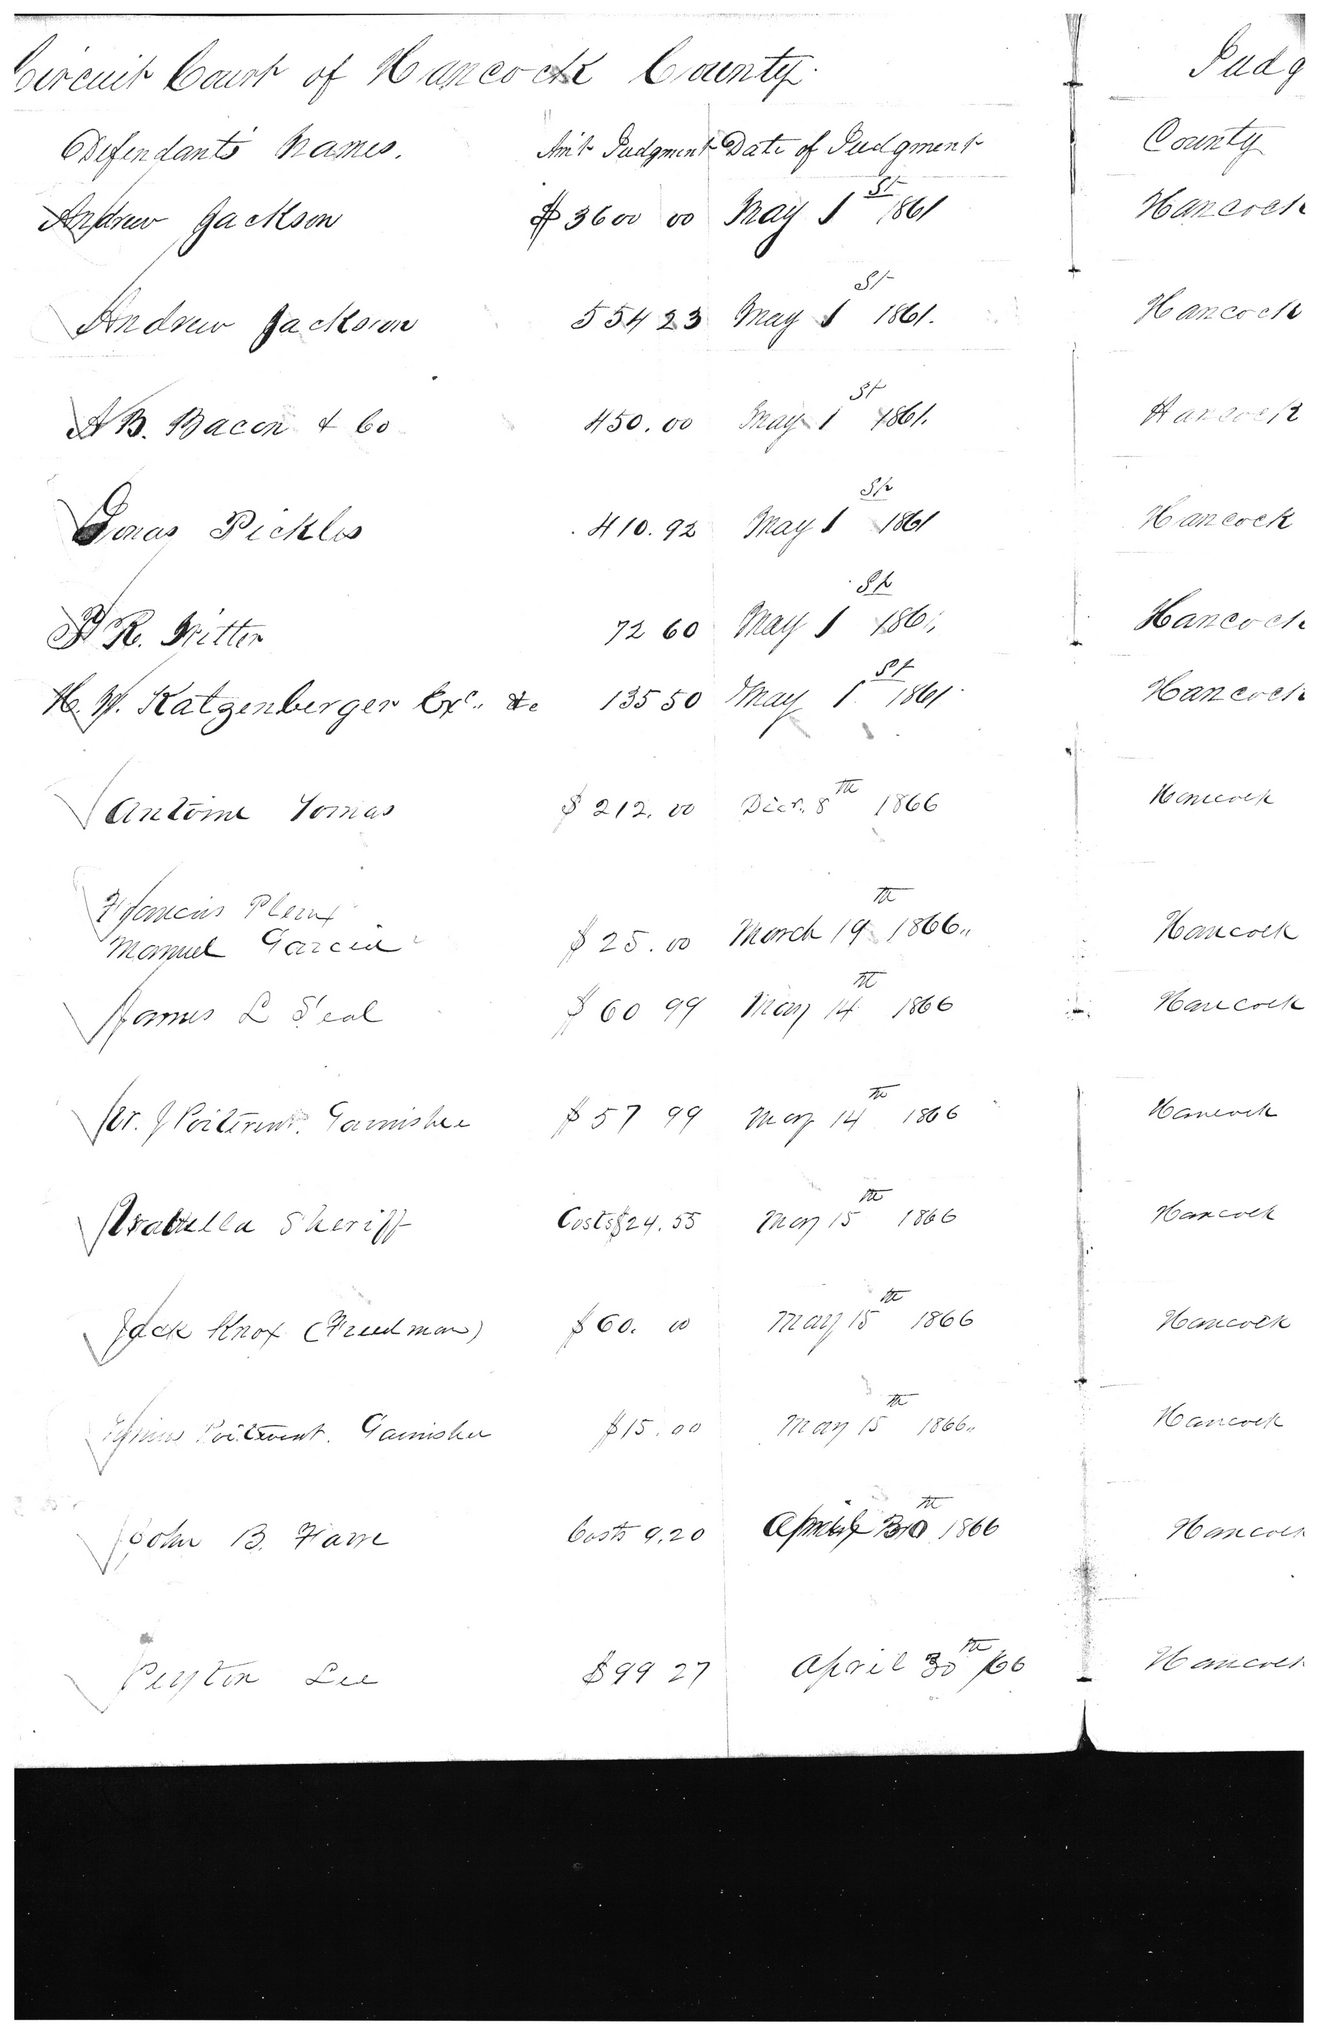 Circuit Court of Hancock County. Judg
Defendants Names. Am't Judgment Date of Judgment County
Andrew Jackson $3600 00 May 1st 1861 Hancock
Andrew Jackson 554 23 May 1st 1861. Hancock
A B. Bacon & Co 450.00 May 1st 1861. Hancock
Jonas Pickles 410.92 May 1st 1861 Hancock
R. Witter 72 60 May 1st 1861. Hancock
H. W. Katzenberger Exc. &c 135 50 May 1st 1861 Hancock
Antoine $212.00 Decr. 8th 1866 Hancock
Francis
Manuel Garcia $25.00 March 19th 1866 Hancock
James L Seal $60 99 May 14th 1866 Hancock
J Poitevent. Garnishee $57 99 May 14th 1866 Hancock
Isabella Sheriff Costs $24.55 May 15th 1866 Hancock
Jack Knox (Freedman) $60. 00 May 15th 1866 Hancock
Poitevent. Garnishee $15.00 May 15th 1866 Hancock
John B. Costs 9.20 April 30th 1866 Hancock
Peyton Lee $99 27 April 30th /66 Hancock